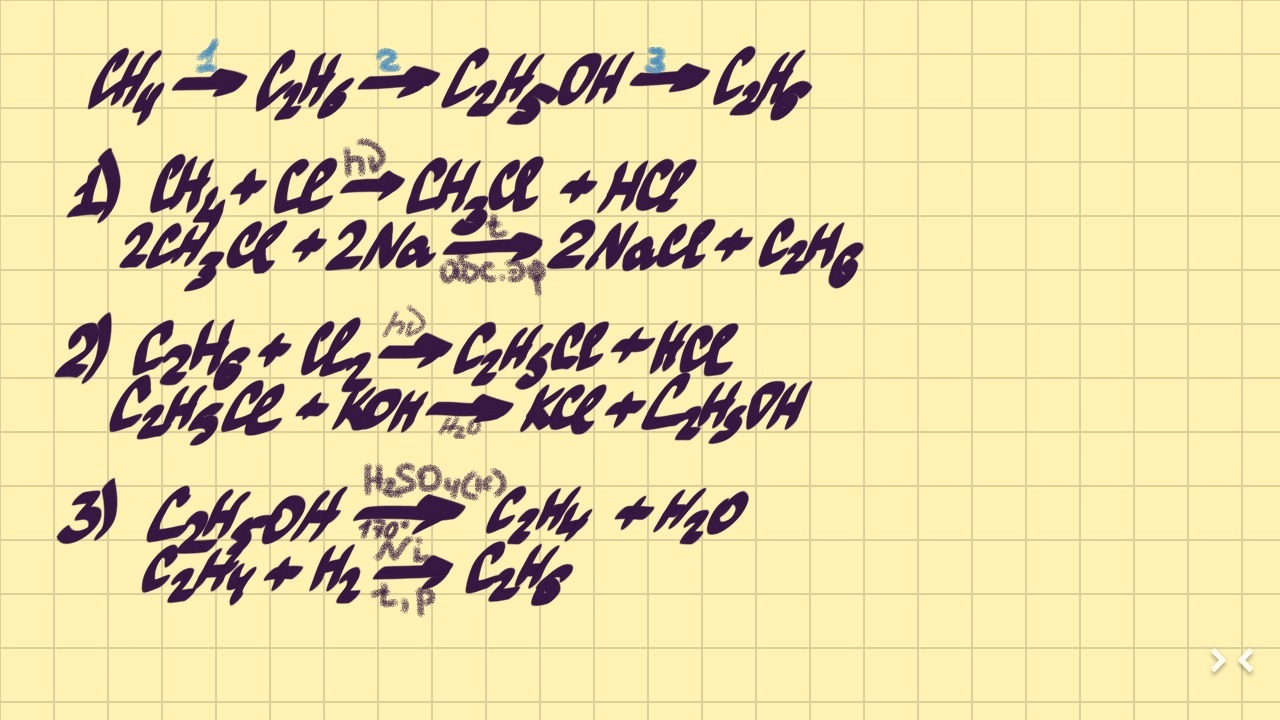 CH₄ →1 C₂H₆ →2 C₂H₅OH →3 C₂H₆
1) CH₄ + Cl →hν CH₃Cl + HCl
2CH₃Cl + 2Na →t абс.эф 2NaCl + C₂H₆
2) C₂H₆ + Cl₂ →hν C₂H₅Cl + HCl
C₂H₅Cl + KOH →H₂O KCl + C₂H₅OH
3) C₂H₅OH →H₂SO₄(к) 170° C₂H₄ + H₂O
C₂H₄ + H₂ →Ni t, p C₂H₆